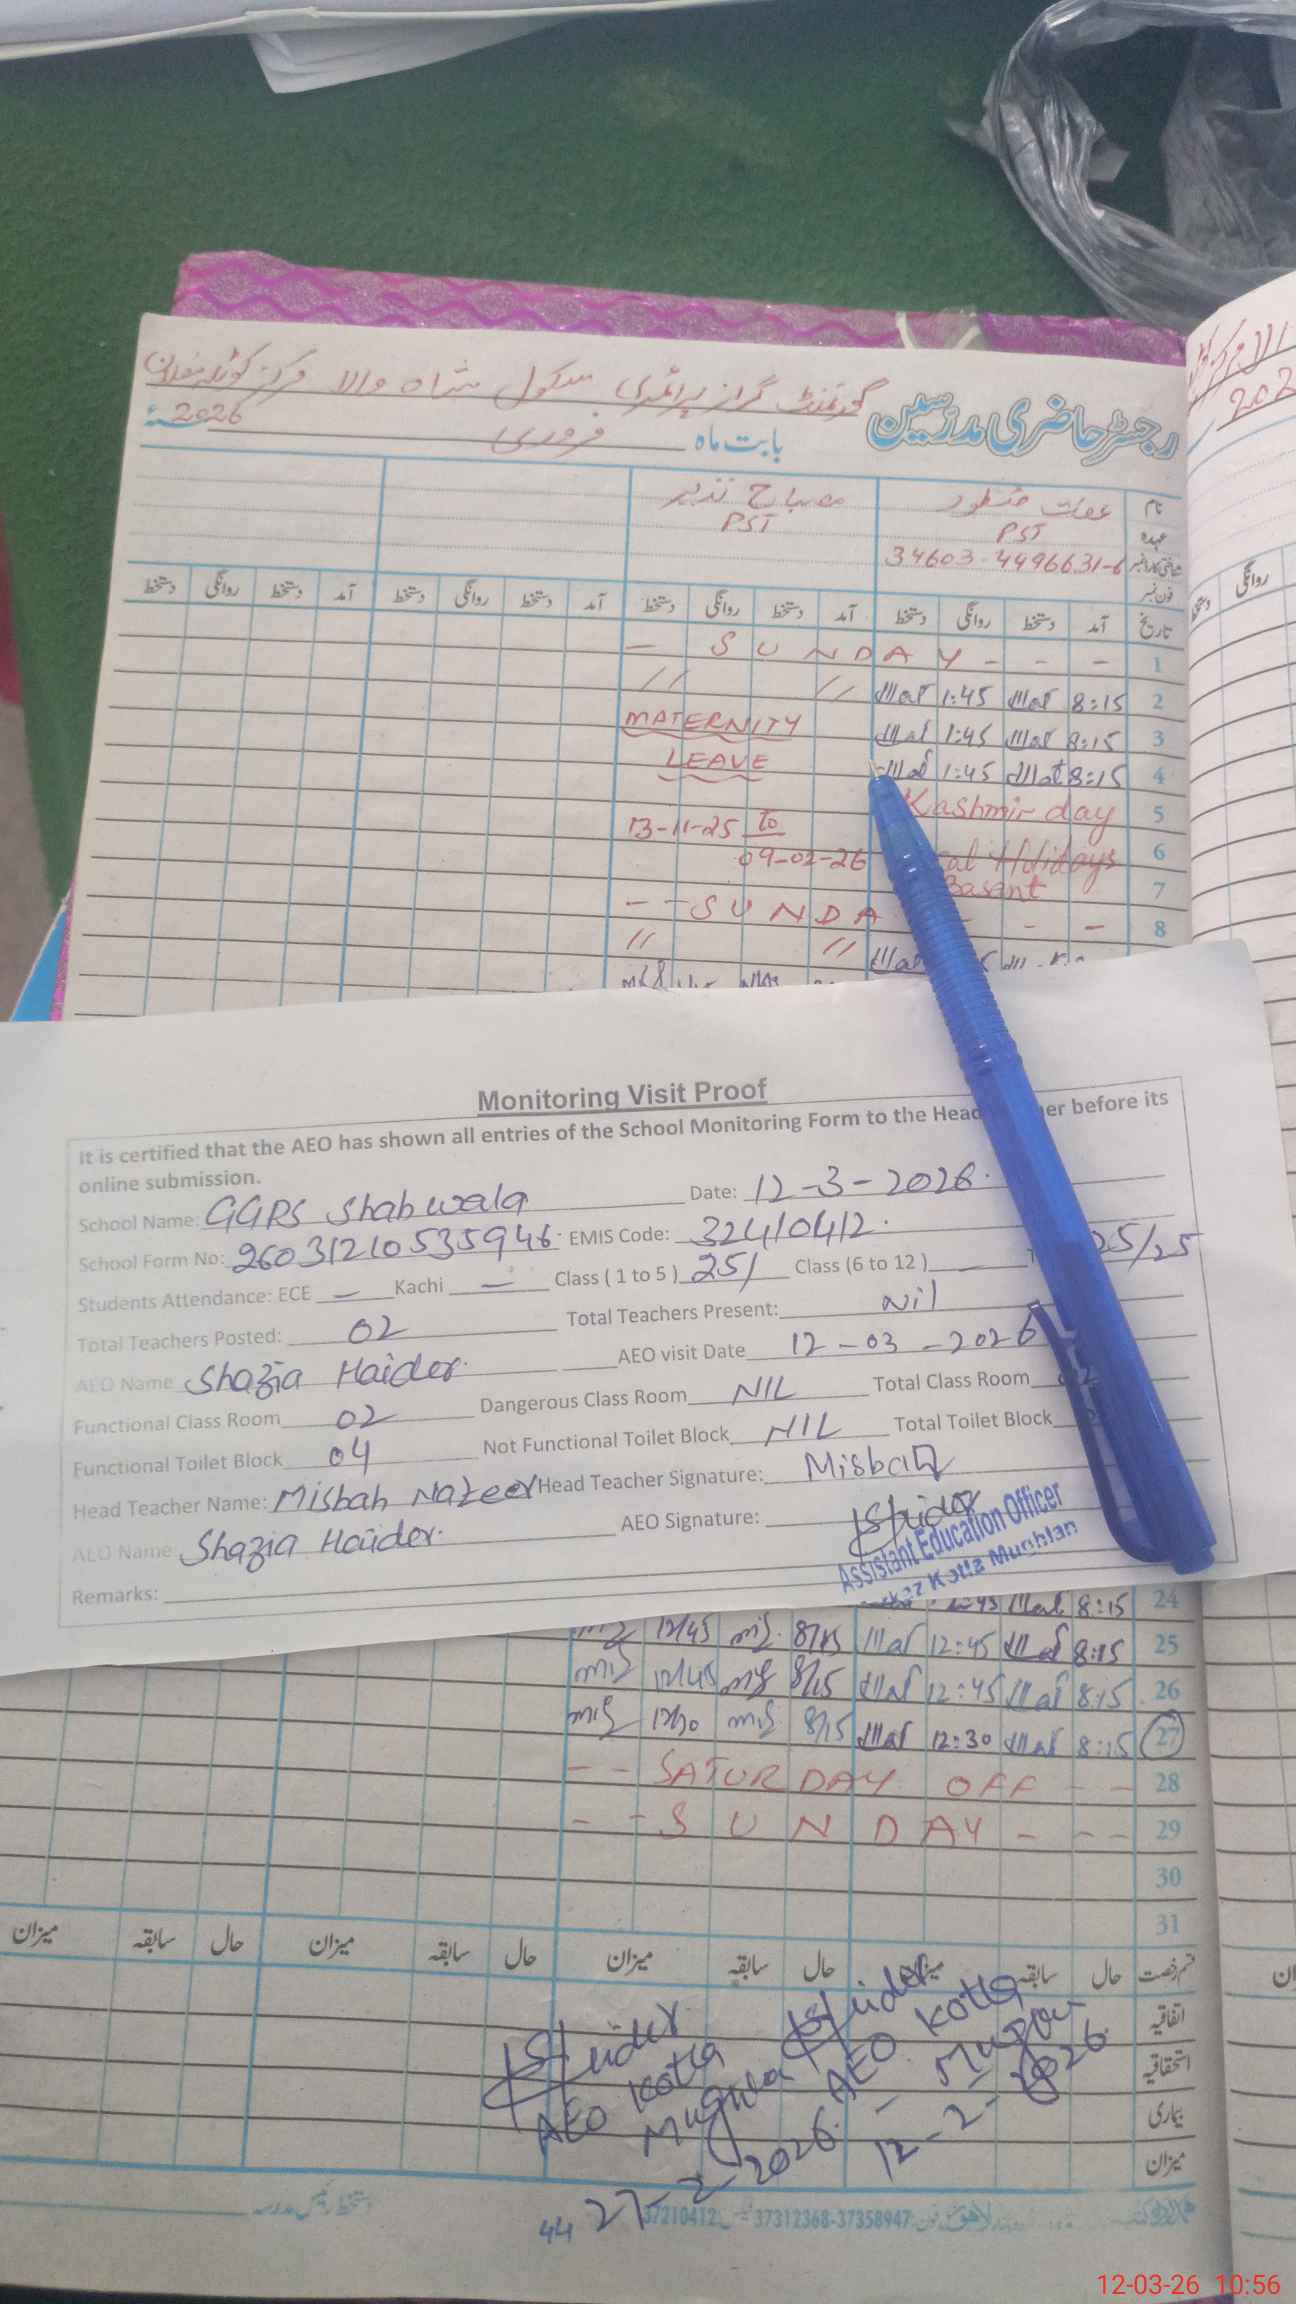 گورنمنٹ گرلز پرائمری سکول شاہ والا مرکز کوٹلہ مغلاں
رجسٹر حاضری مدرسین
بابت ماہ فروری 2026
نام عفت منظور مصباح نذیر
عہدہ PST PST
34603-4496631-6
فون نمبر
تاریخ آمد دستخط روانگی دستخط آمد دستخط روانگی دستخط آمد دستخط روانگی دستخط آمد دستخط روانگی دستخط
1 - SUNDAY - - -
2 8:15 1:45 // //
3 8:15 1:45 MATERNITY
4 8:15 1:45 LEAVE
5 Kashmir day 13-11-25 to
6 Holidays 09-02-26
7 Basant
8 - - SUNDA - -
// //
Monitoring Visit Proof
It is certified that the AEO has shown all entries of the School Monitoring Form to the Head before its
online submission.
School Name: GGPS Shahwala Date: 12-3-2026.
School Form No: 26031210535946. EMIS Code: 32410412.
Students Attendance: ECE — Kachi — Class ( 1 to 5 ) 25/ Class (6 to 12 ) — 25/25
Total Teachers Posted: 02 Total Teachers Present: Nil
AEO Name Shazia Haider. AEO visit Date 12-03-2026
Functional Class Room 02 Dangerous Class Room NIL Total Class Room
Functional Toilet Block 04 Not Functional Toilet Block NIL Total Toilet Block
Head Teacher Name: Misbah Nazeer Head Teacher Signature: Misbah
AEO Name Shazia Haider. AEO Signature: Haider
Assistant Education Officer
Kotla Mughlan
Remarks:
24 8:15
25 8:15 12:45 8/15 12/45
26 8:15 12:45 8/15 12/45
27 8:15 12:30 8/15
28 - - SATURDAY OFF - -
29 - - SUNDAY - - -
30
31
قسم رخصت حال سابقہ میزان حال سابقہ میزان حال سابقہ میزان حال سابقہ میزان
اتفاقیہ
استحقاقیہ
بیماری
میزان
Haider
AEO Kotla
27-2-2026.
Haider
AEO Kotla
12-2-2026.
دستخط رئیس مدرسہ
37210412 37312368-37358947
44
12-03-26 10:56